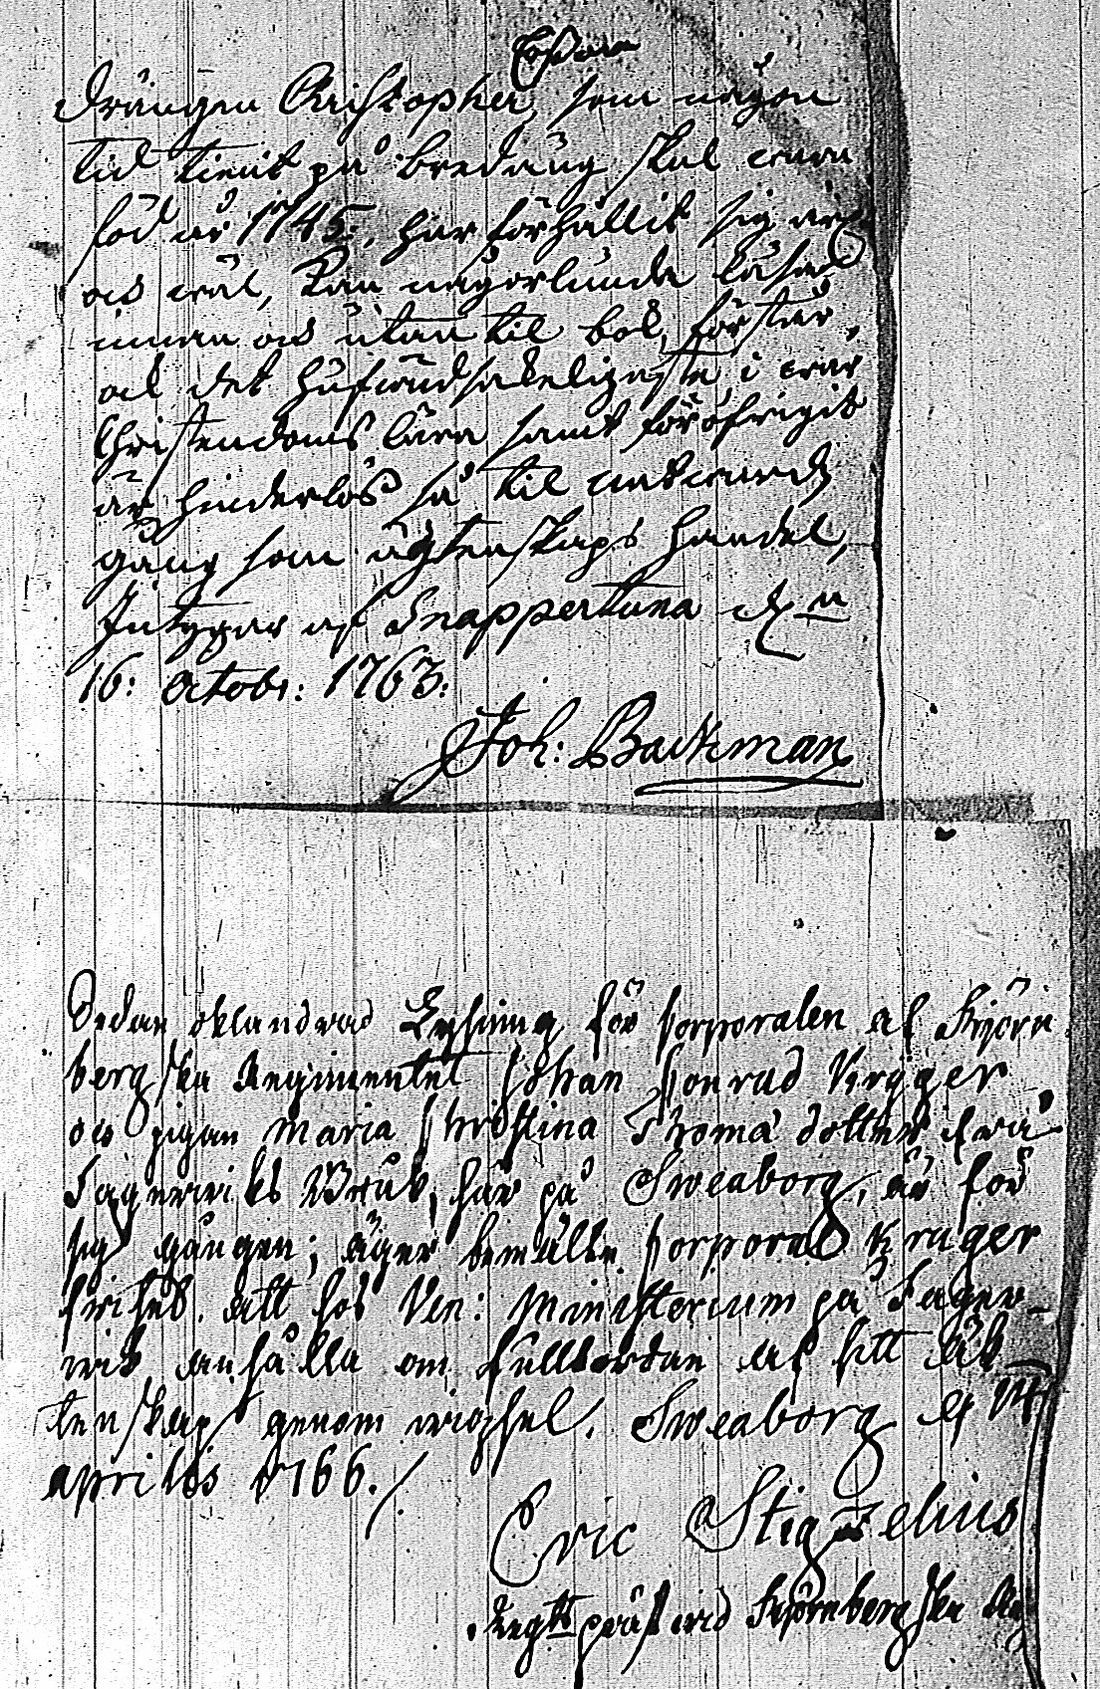 Drängen Christopher, som någon
tid tient på Bredäng skal wara
föd år 1745., har förhållit sig är-
ois wäl, kan någorlunda läsa
innan oc utan til bok, förstår
ock det hufwudsakeligaste i wår
Christendoms lära samt för öfrigit
är hinderlös så til nattward-
gång som ägtenskaps handel,
Intygar af Snappertuna d.
16: Octobr: 1763:
Joh: Backman
Sedan oklandrad Lysning för Corporalen af Björn-
bergska Regimentet Johan Conrad Krüger
och pigan Maria Christina Thomædotter ifrån
Fagerwiks Bruk, här på Sweaborg, är för
sig gången; äger bemälte Corporal Krüger
frihet att hos Ven: Ministerium på Fager-
wik anhålla om fullbordan af sitt äk-
tenskap genom wigsel. Sweaborg d.
aprilis 1766./.
Eric Stigzelius
Regts präst wid Björnbergska Reg